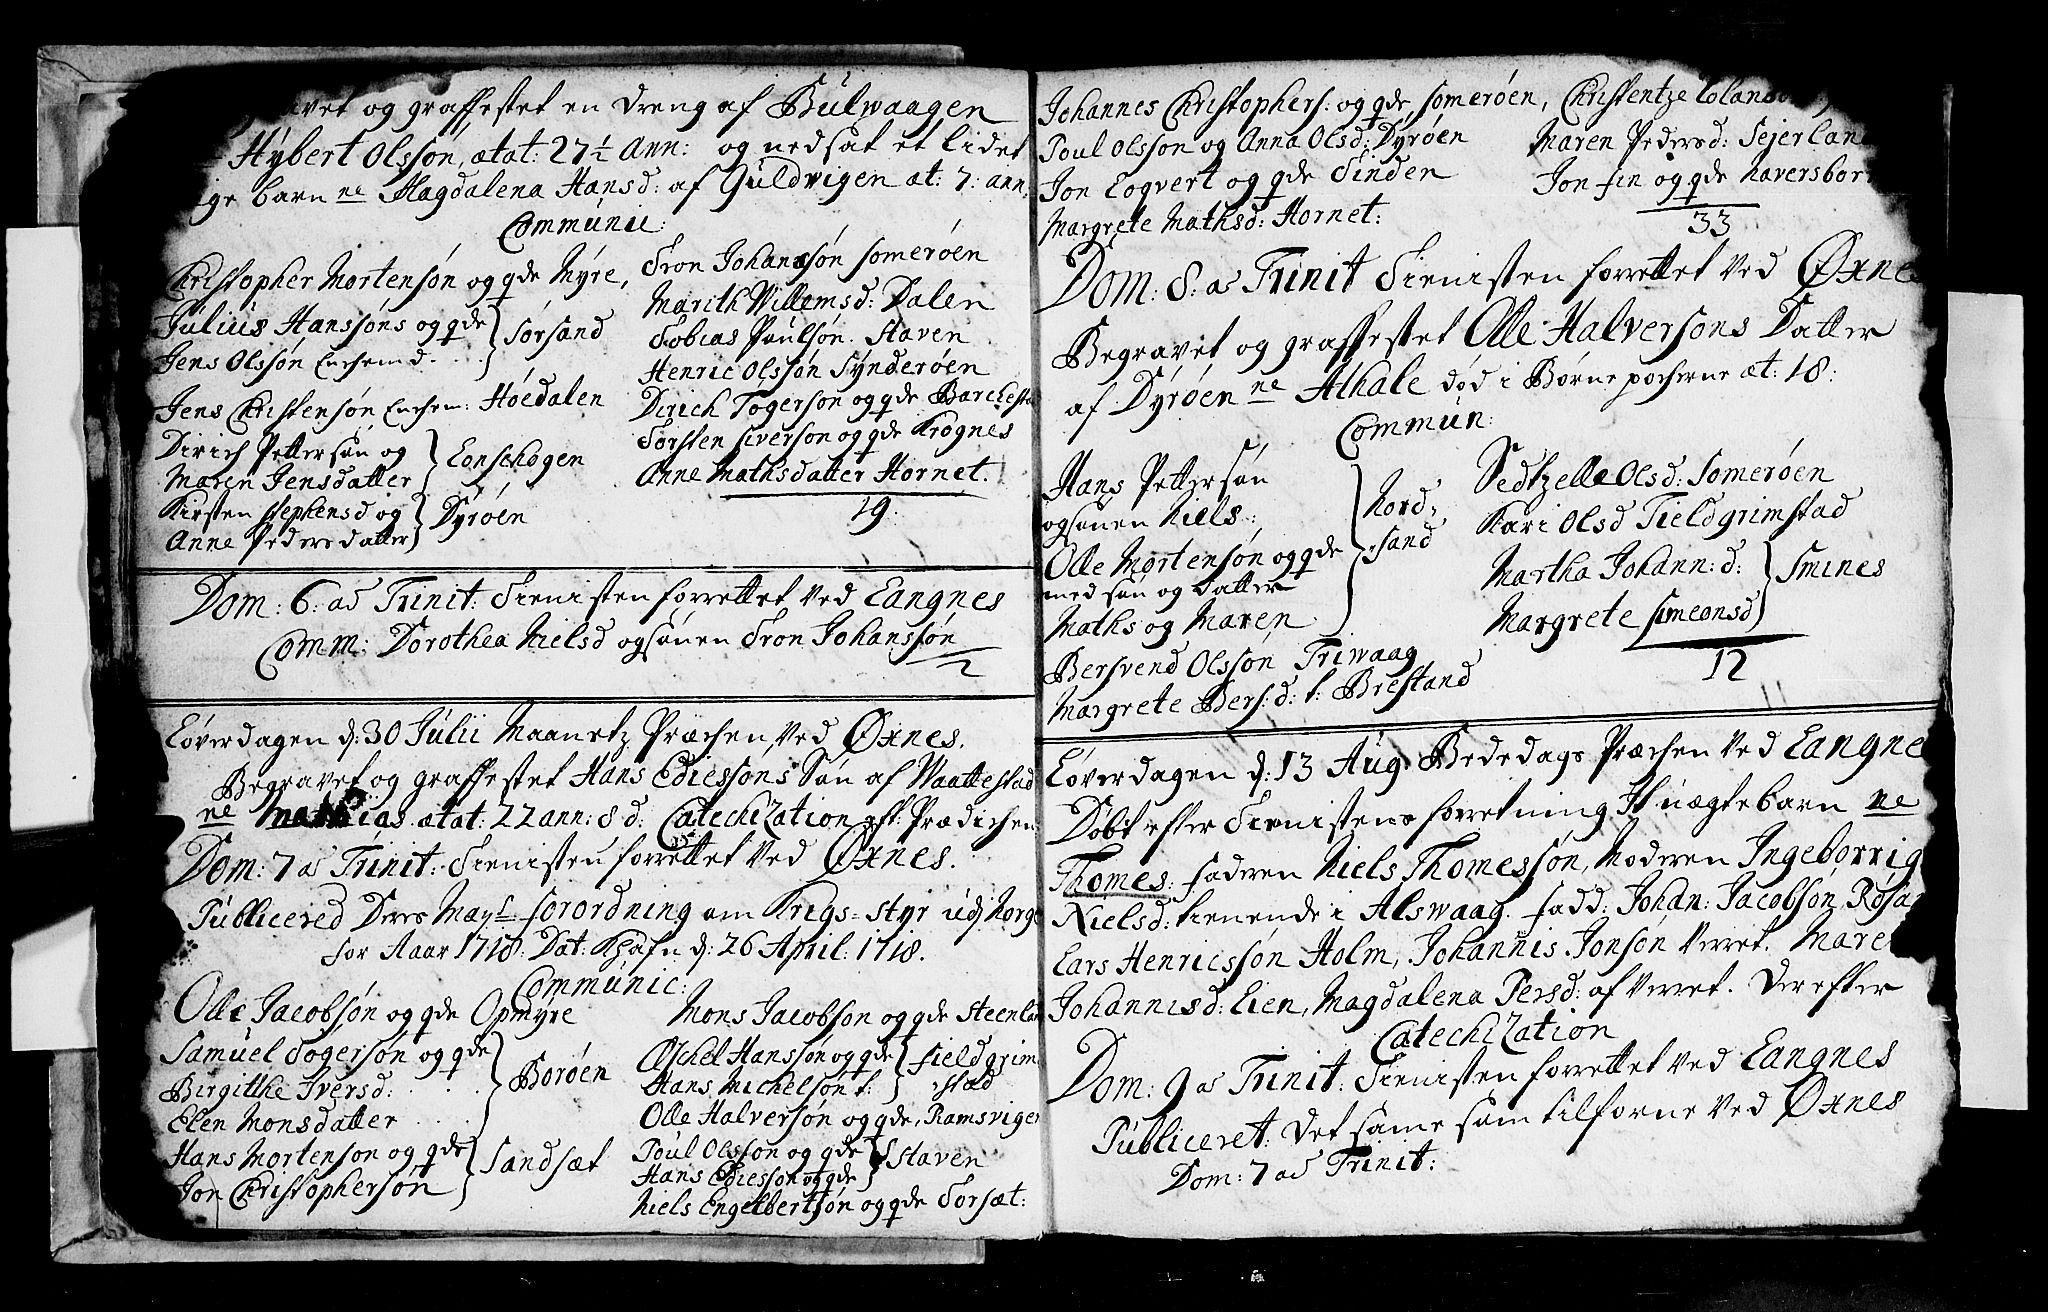 og graffestet en Dreng af Bulwaagen
Hybert Olssøn, ætat: 27½ Ann: og nedsat et lidet
barn ne Magdalena Hansd: af Guldvigen æt: 7: ann.
Communic:
Christopher Mortensøn og qde Myre,
Julius Hanssøns og qde } Sørsand
Jens Olssøn Enchemd. . .
Jens Christensøn Enchem: Høedalen
Dirich Pettersøn og } Lonschogen
Maren Jensdatter
Kirsten Stephensd og } Dyrøen
Anne Pedersdatter
Tron Johansøn Somerøen
Marith Willemsd: Dalen
Tobias Poulsøn. Staven
Henric Olsøn Synderøen
Dirich Togerson og qde Barchesta
Torsten Siversøn og qde Krognes
Anne Mathsdatter Hornet.
19.
Dom: 6: ad Trinit: Tienisten forrettet Ved Langnes
Comm: Dorothea Nielsd ogsønen Tron Johanssøn
2
Løverdagen d: 30 Julii Maanetz Præchen Ved Øxnes.
Begravet og graffestet Hans Ediessøns Søn af Waattestad
ne Mathias ætat: 22 ann: 8 d: Catechization eft: Prædichen
Dom: 7 ad Trinit: Tienisten forrettet Ved Øxnes.
Publicered Ders Mayst forordning om Krigs-styr udj Norge
for Aaar 1718: Dat: Khafn d: 26 April: 1718.
Communic:
Olle Jacobsøn og qde Opmyre
Samuel Togersøn og qde } Borøen
Birgitthe Iversd: . . .
Elen Monsdatter . . .
Hans Mortenson og qde } Sandsæt
Jon Christophersøn
Mons Jacobson og qde Steenlan
Øschel Hanssøn og qde } Fieldgrim
Hans Michelsøn f: stad
Olle Halversøn og qde, Ramsvigen
Poul Olsson og qde } Staven
Hans Ediesson og qde
Niels Engelbertsøn og qde Torsæt:
Johannes Christophers: og qde Somerøen,
Poul Olsson og Anna Olsd: Dyrøen
Jon Logvert og qde Tinden
Margrete Mathsd: Hornet:
Christentze
Maren Pedersd: Sejerlan
Jon fin og qde haversbor
33
Dom: 8: ad Trinit Tienisten forrettet Ved Øxnes
Begravet og graffestet Olle Halversons Datter
af Dyrøen ne Athale død i Børne pocherne æt: 18:
Commun:
Hans Pettersøn
ogsønen Niels:
Olle Mortensøn og qde } Nord-sand
med søn og Datter
Maths og Maren
Bersvend Olssøn Triwaag
Margrete Bers: d: f: Brestand
Sedtzelle Olsd: Somerøen
Kari Olsd Fieldgrimstad
Martha Johann: d: } Smines
Margrete Simeonsd
12
Løverdagen d: 13 Aug: Bededags Præchen Ved Langne
Døbt efter Tienistens forretning It uægte barn ne
Thomes: faderen Niels Thomessøn, Moderen Ingeborrig
Nielsd: tienende i Alswaag. fadd: Johan: Jacobsøn,
Lars Henricsøn Holm, Johannis Jonsøn Verret. Maren
Johannisd: Eien, Magdalena Persd: af Verret. Derefter
Catechization
Dom: 9 ad Trinit: Tienisten forrettet Ved Langnes
Publiceret: det same som tilforne Ved Øxnes
Dom: 7 ad Trinit: